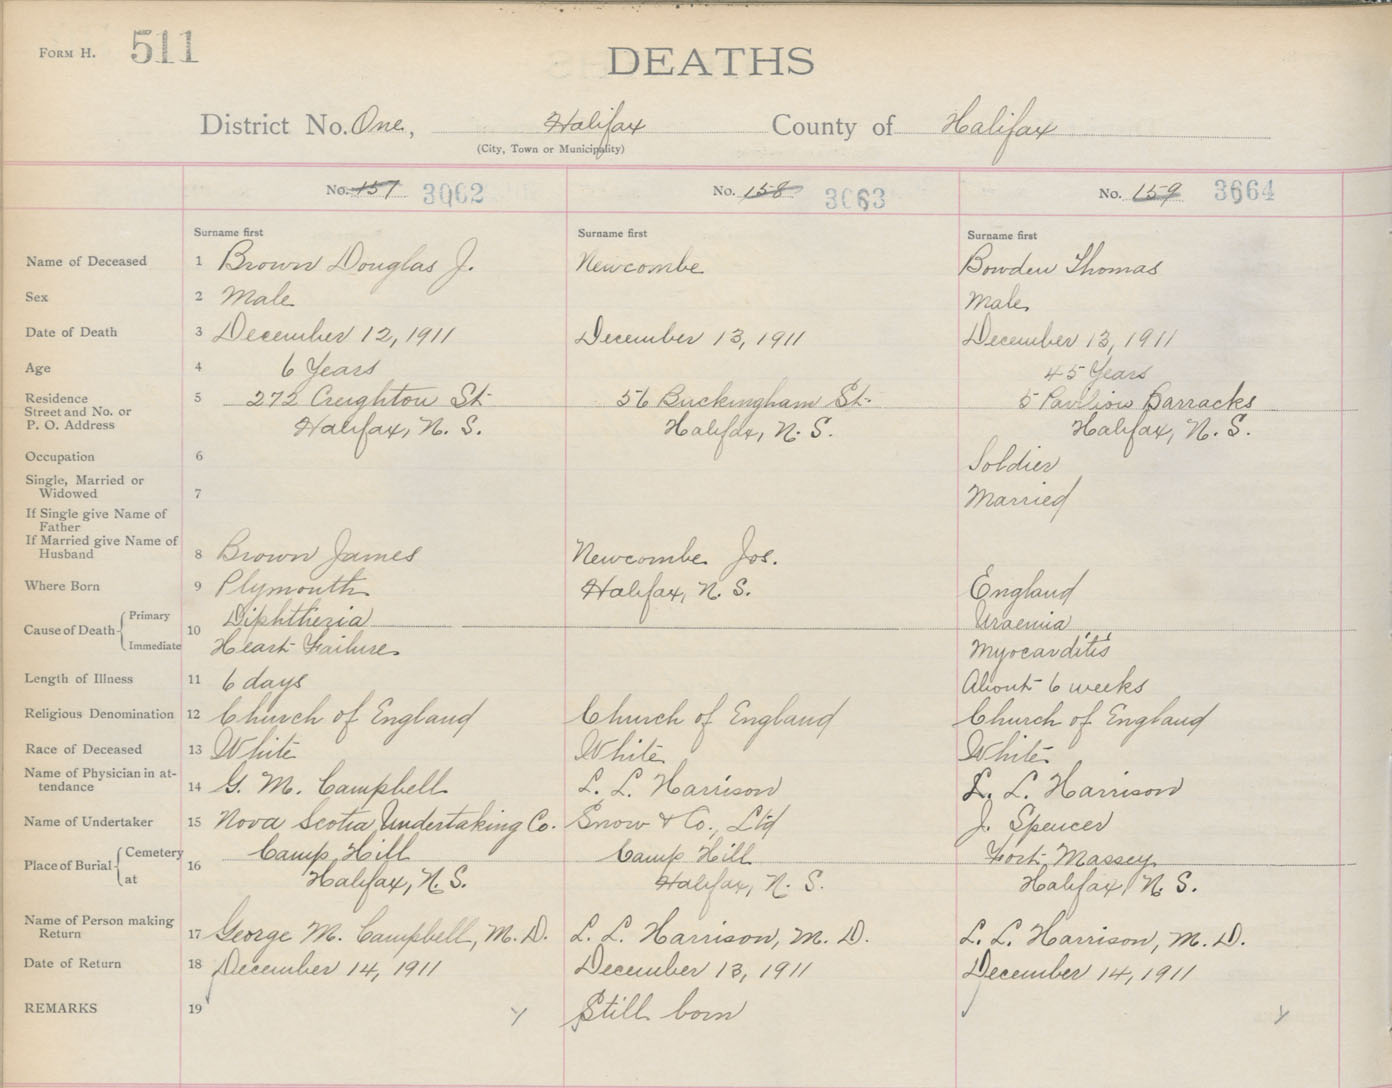 FORM H. 511
DEATHS
District No. One, Halifax County of Halifax
(City, Town or Municipality)
No. 157 3062 No. 158 3063 No. 159 3664
Surname first Surname first Surname first
Name of Deceased 1 Brown Douglas J. Newcombe Bowden Thomas
Sex 2 Male Male
Date of Death 3 December 12, 1911 December 13, 1911 December 13, 1911
Age 4 6 Years 45 Years
Residence 5 272 Creighton St 56 Buckingham St. 5 Pavilion Barracks
Street and No. or
P. O. Address Halifax, N. S. Halifax, N. S. Halifax, N. S.
Occupation 6 Soldier
Single, Married or
Widowed 7 Married
If Single give Name of
Father
If Married give Name of
Husband 8 Brown James Newcombe Jos.
Where Born 9 Plymouth Halifax, N. S. England
Cause of Death Primary 10 Diphtheria Uraemia
Immediate Heart Failure Myocarditis
Length of Illness 11 6 days About 6 weeks
Religious Denomination 12 Church of England Church of England Church of England
Race of Deceased 13 White White White
Name of Physician in at-
tendance 14 G. M. Campbell L. L. Harrison L. L. Harrison
Name of Undertaker 15 Nova Scotia Undertaking Co. Snow & Co., Ltd J. Spencer
Place of Burial Cemetery 16 Camp Hill Camp Hill Fort Massey
at Halifax, N. S. Halifax, N. S. Halifax, N. S.
Name of Person making
Return 17 George M. Campbell, M. D. L. L. Harrison, M. D. L. L. Harrison, M. D.
Date of Return 18 December 14, 1911 December 13, 1911 December 14, 1911
REMARKS 19 Still born